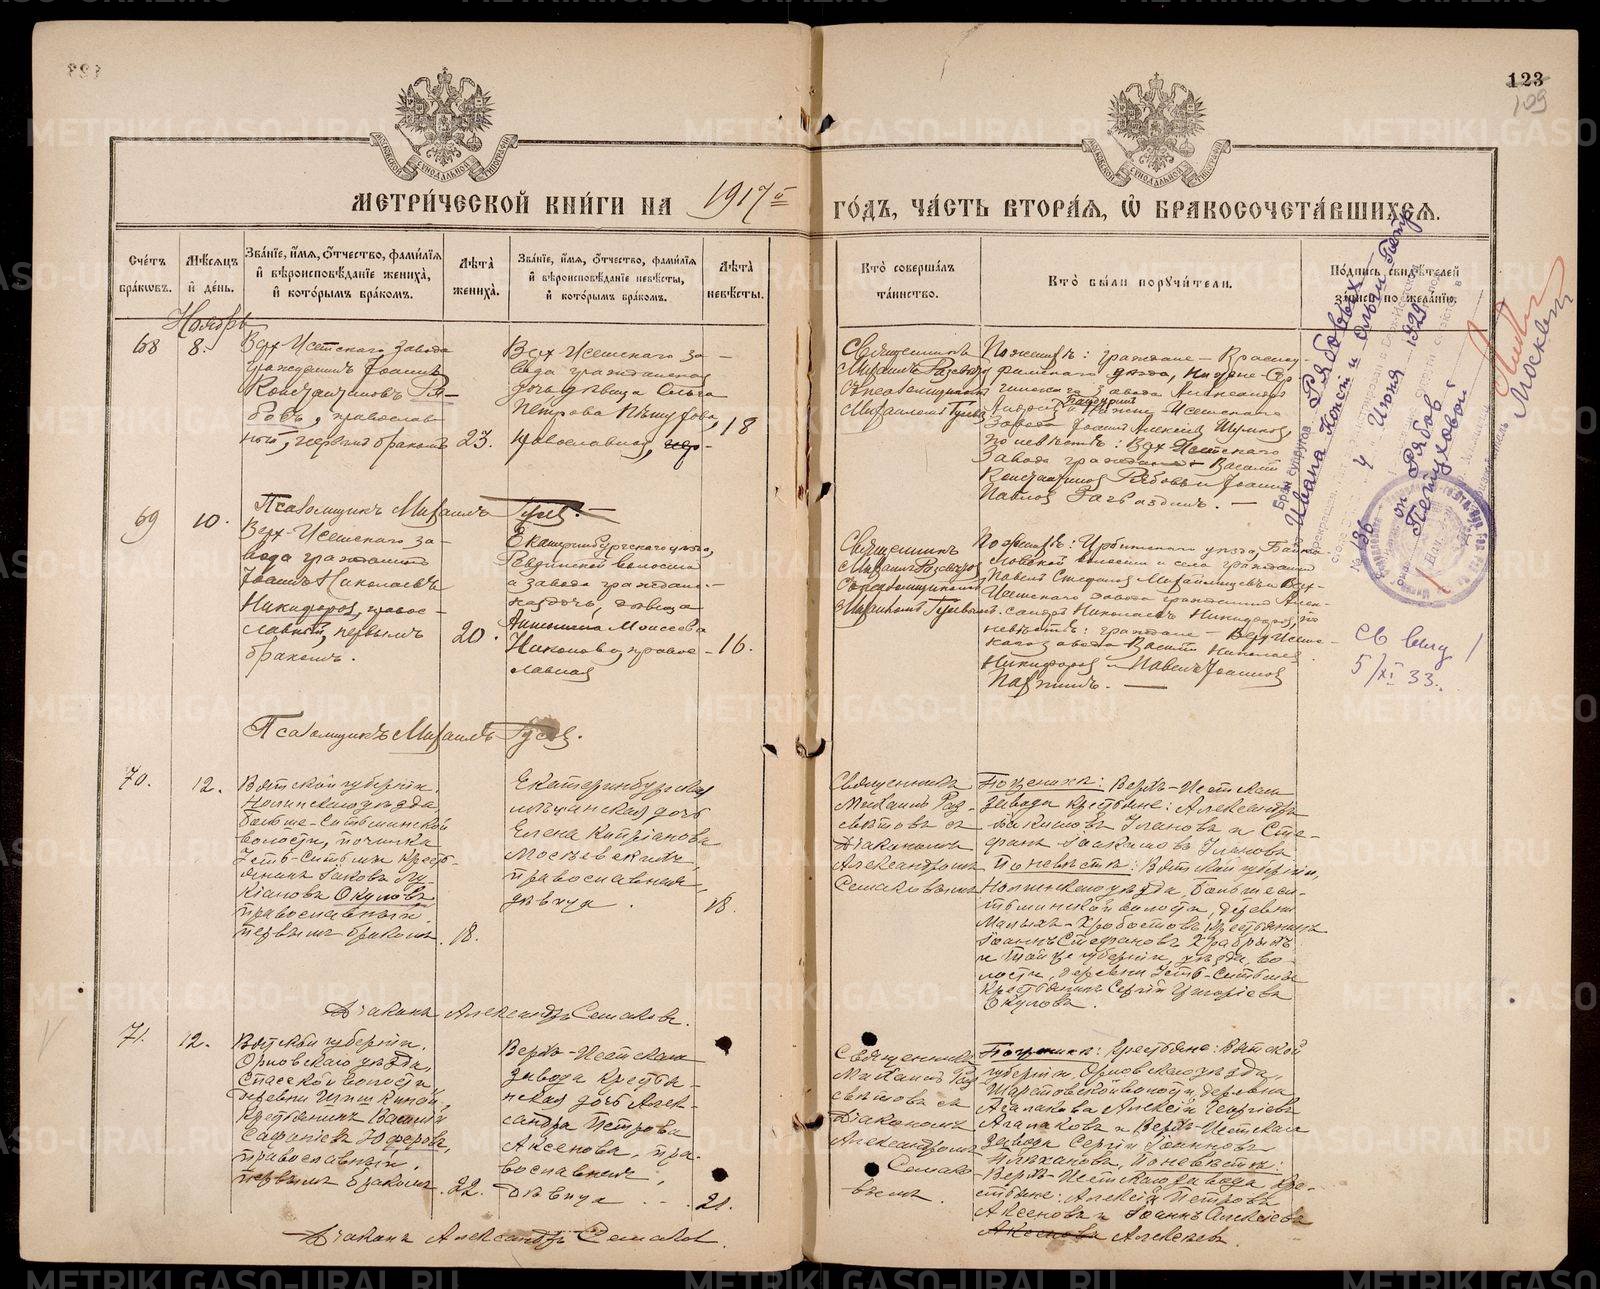 123
109
МЕТРИЧЕСКОЙ КНИГИ НА 1917й
ГОДЪ, ЧАСТЬ ВТОРАЯ, Ѡ БРАКОСОЧЕТАВШИХСЯ.
Счетъ браковъ.
Мѣсяцъ и день.
Званіе, имя, отчество, фамилія
и вѣроисповѣданіе жениха,
и которымъ бракомъ.
Лѣта жениха.
Званіе, имя, отчество, фамилія
и вѣроисповѣданіе невѣсты,
и которымъ бракомъ.
Лѣта невѣсты.
Кто совершалъ
таинство.
Кто были поручители.
Подпись свидѣтелей
записи по желанію.
Ноябрь
68
8.
Верх-Исетскаго завода
гражданинъ Іоаннъ
Константиновъ Ря-
бовъ, православ
ный, первымъ бракомъ
23.
Верх-Исетскаго за-
вода гражданская
дочь дѣвица Ольга
Петрова Пѣтухова,
православная,
18
Священникъ
Михаилъ Разсвѣтовъ
съ псаломщикомъ
Михаиломъ Гусевымъ
По женихѣ: граждане — Красно-
уфимскаго уѣзда, Нижне-Сер
гинскаго завода Александръ
Завода Іоаннъ Алексѣев Шумков,
По невѣстѣ: Верх-Исетскаго
Завода граждане Василій
Константиновъ Рябовъ и Іоаннъ
Павловъ Загвоздинъ. —
Псаломщикъ Михаилъ Гусев. —
69
10.
Верх-Исетскаго за-
вода гражданинъ
Іоаннъ Николаевъ
Никифоров, правос-
лавный, первымъ
бракомъ.
20.
Екатеринбургскаго уѣзда,
Ревдинской волости
и завода граждан.-
ская дочь, дѣвица
Антонина Моисеева
Никонова, правос-
лавная
16.
Священникъ
Михаилъ Разсвѣтовъ
съ псаломщикомъ
Михаиломъ Гусевымъ
По женихѣ: Ирбитскаго уѣзда, Байка-
ловской волости и села гражданинъ
Павелъ Стефановъ Михайлищевъ и Верх-
Исетскаго завода гражданинъ Алек-
сандръ Николаевъ Никифоровъ, по
невѣстѣ: граждане — Верх-Исетс-
каго завода Василій Николаев
Никифоровъ и Павелъ Іоаннов
Псаломщикъ Михаилъ Гусев.
70.
12.
Вятской губерніи,
Нолинскаго уѣзда,
Больше-Ситьминской
волости, починка
Усть-Ситьмы крест
янинъ Іаковъ Лу-
кіановъ Окуловъ,
православный,
первымъ бракомъ.
18.
Екатеринбургская
мѣщанская дочь
Елена Кипріанова
православная,
дѣвица.
18.
Священникъ
Михаилъ Раз-
свѣтовъ съ
Діакономъ
Александромъ
Семаковымъ
По женихѣ: Верхъ-Исетскаго
завода крестьяне: Александръ
Іакимовъ Улановъ и Сте-
фанъ Іоакимовъ Улановъ
По невѣстѣ: Вятской губерніи,
Нолинскаго уѣзда, Большеси-
тьминской волости, деревни
Малыхъ-Хробостовъ крестьянинъ
Іоаннъ Стефановъ Храбрыхъ
и той же губерніи, уѣзда, во-
лости, деревни Усть-Ситьмы
крестьянинъ Сергій Григоріевъ
Окуловъ.
Діаконъ Александръ Семаковъ.
71.
12.
Вятской губерніи,
Орловскаго уѣзда,
Спасской волости,
деревни Шишкиной,
крестьянинъ Василій
Сафоніевъ Юферовъ,
православный,
первымъ бракомъ.
22.
Верхъ-Исетскаго
завода крестья-
нская дочь Алек-
сандра Петрова
Аксенова, пра-
вославная,
дѣвица
21.
Священникъ
Михаилъ Раз-
свѣтовъ съ
Діакономъ
Александромъ
Семако-
вымъ.
По женихѣ: крестьяне: Вятской
губерніи, Орловскаго уѣзда,
Шарыповской волости, деревни
Агалакова Алексій Георгіевъ
Агалаковъ и Верхъ-Исетскаго
завода Сергій Іоанновъ
Плехановъ, По невѣстѣ:
Верхъ-Исетскаго завода кре-
стьяне: Алексій Петровъ
Аксеновъ и Іоаннъ Алексіевъ
Аксеновъ Алексѣевъ.
Діаконъ Александръ Семаковъ.
Брак супругов
Рябовых
Ивана Конст. и Ольги Петр
4 Июня 1929
№ 136
он Рябов
она Петуховой
5/XI 33.
METRIKI.GASO-URAL.RU